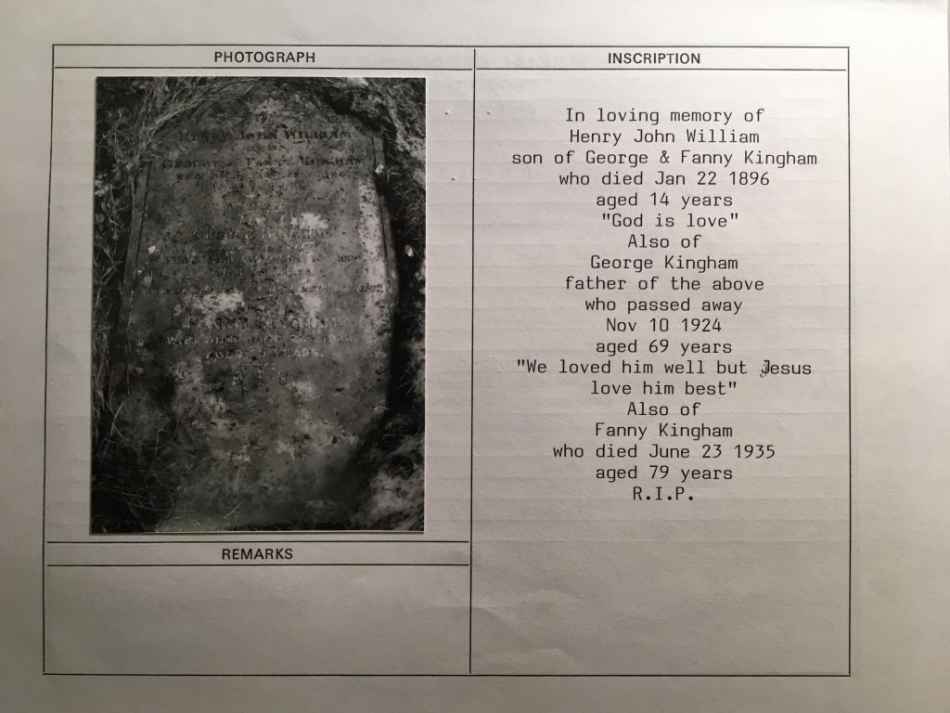 PHOTOGRAPH
INSCRIPTION
In loving memory of
Henry John William
son of George & Fanny Kingham
who died Jan 22 1896
aged 14 years
"God is love"
Also of
George Kingham
father of the above
who passed away
Nov 10 1924
aged 69 years
"We loved him well but Jesus
love him best"
Also of
Fanny Kingham
who died June 23 1935
aged 79 years
R.I.P.
REMARKS